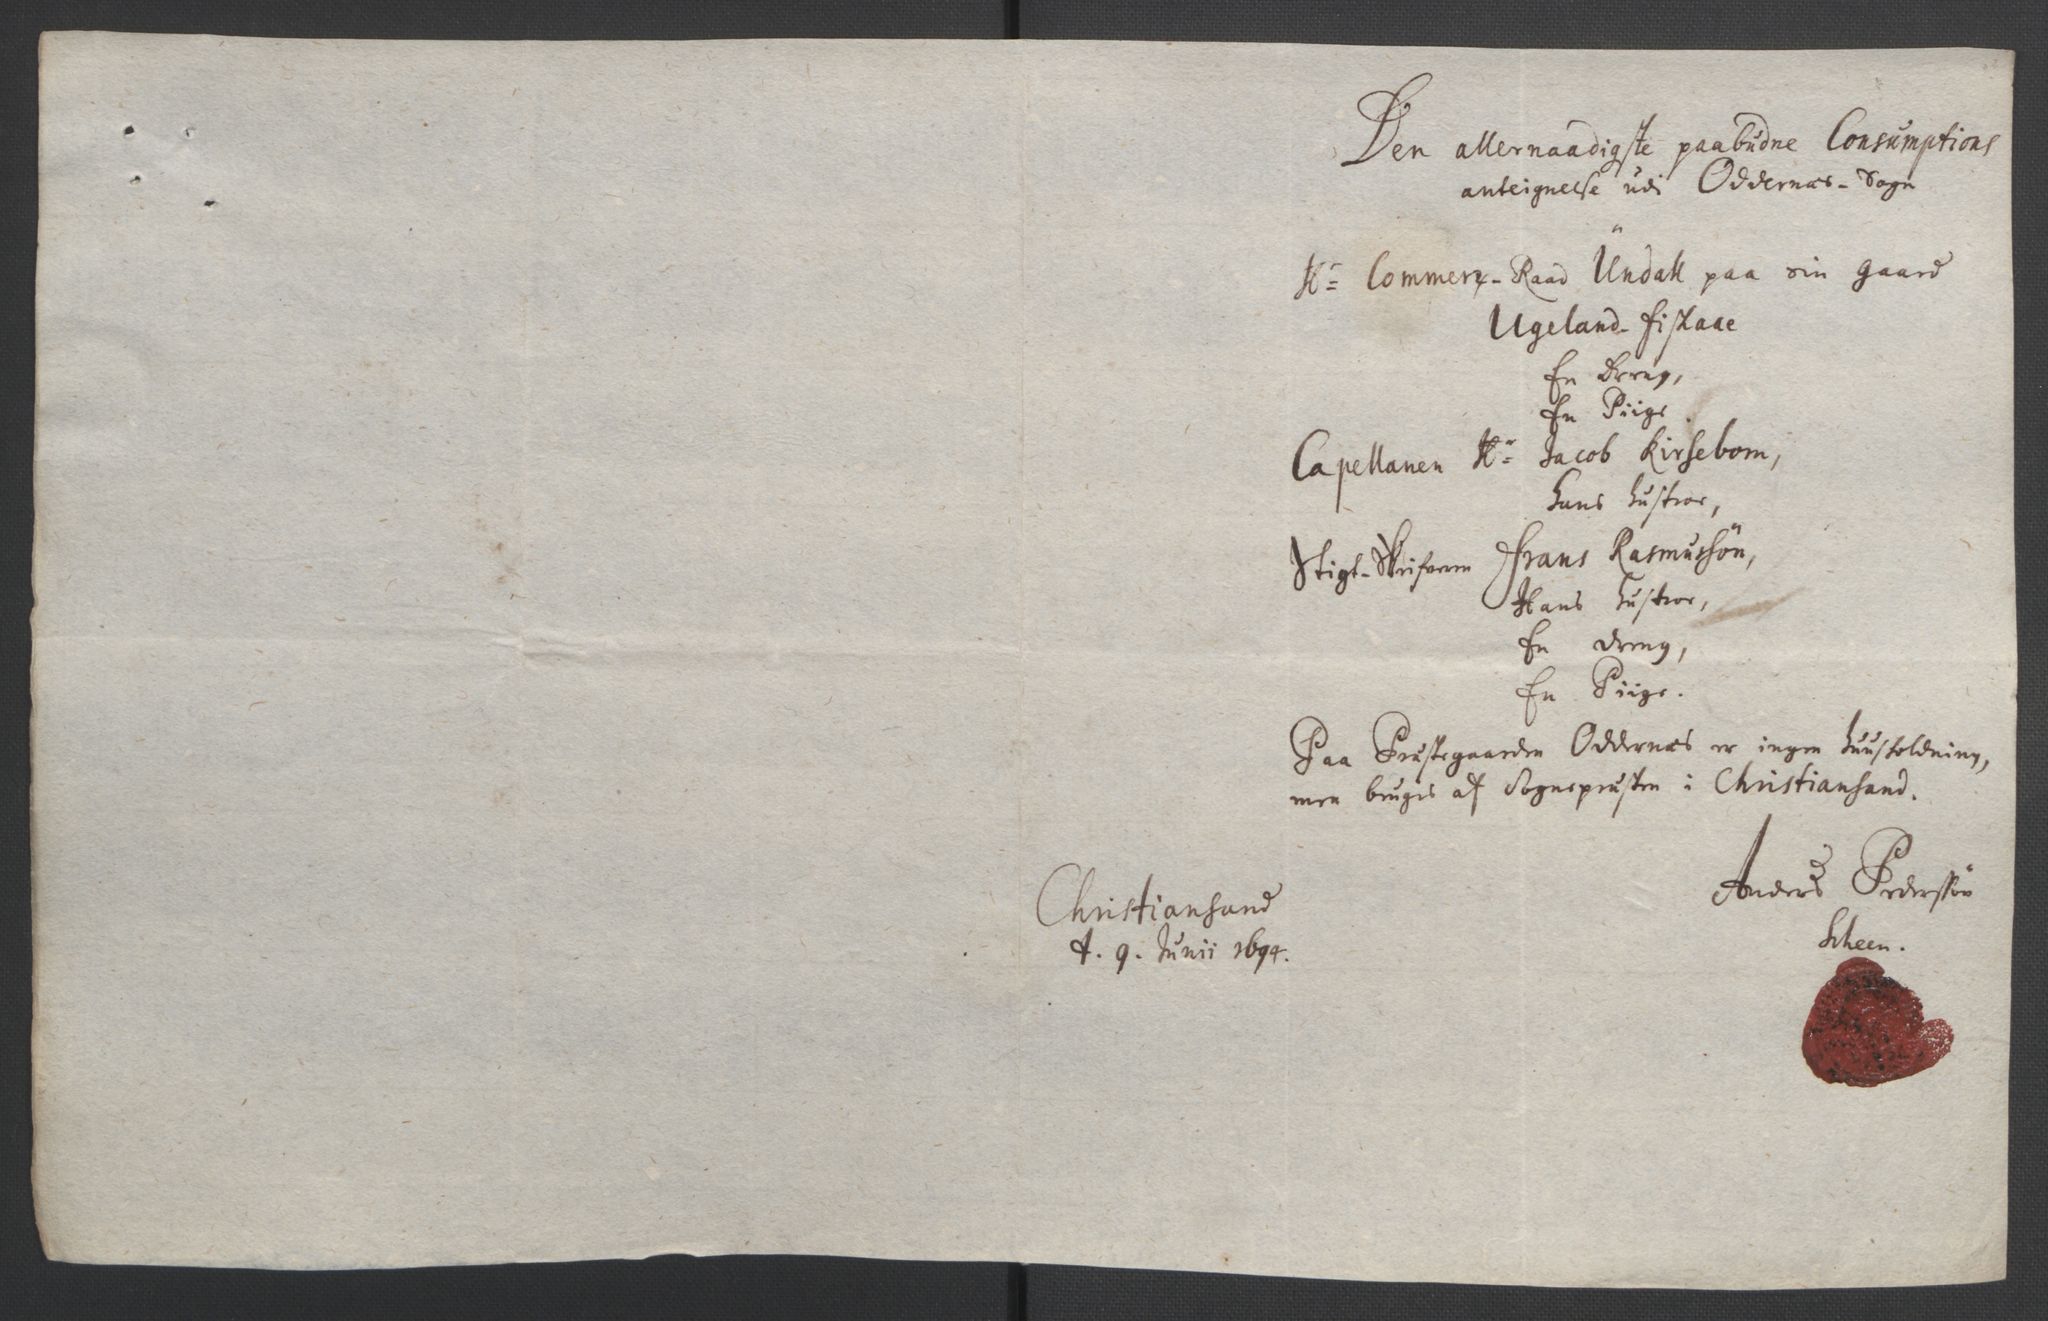 Den allernaadigste paabudne Consumptions
anteignelse udi Oddernæs-Sogn
Hr= Commerz-Raad Undall paa sin gaard
Ugeland-fiskaae
En dreng,
En Piige
Capellanen Hr= Jacob Kirsebom,
hans hustroe,
Stigt-Skrifveren Frans Rasmussön,
Hans hustroe,
En dreng,
En Piige.
Paa Prestegaarden Oddernæs er ingen huusholdning,
men brugis af Sognepresten i Christiansand.
Anders Pederssön
Scheen.
Christiansand
d. 9. Junii 1694.